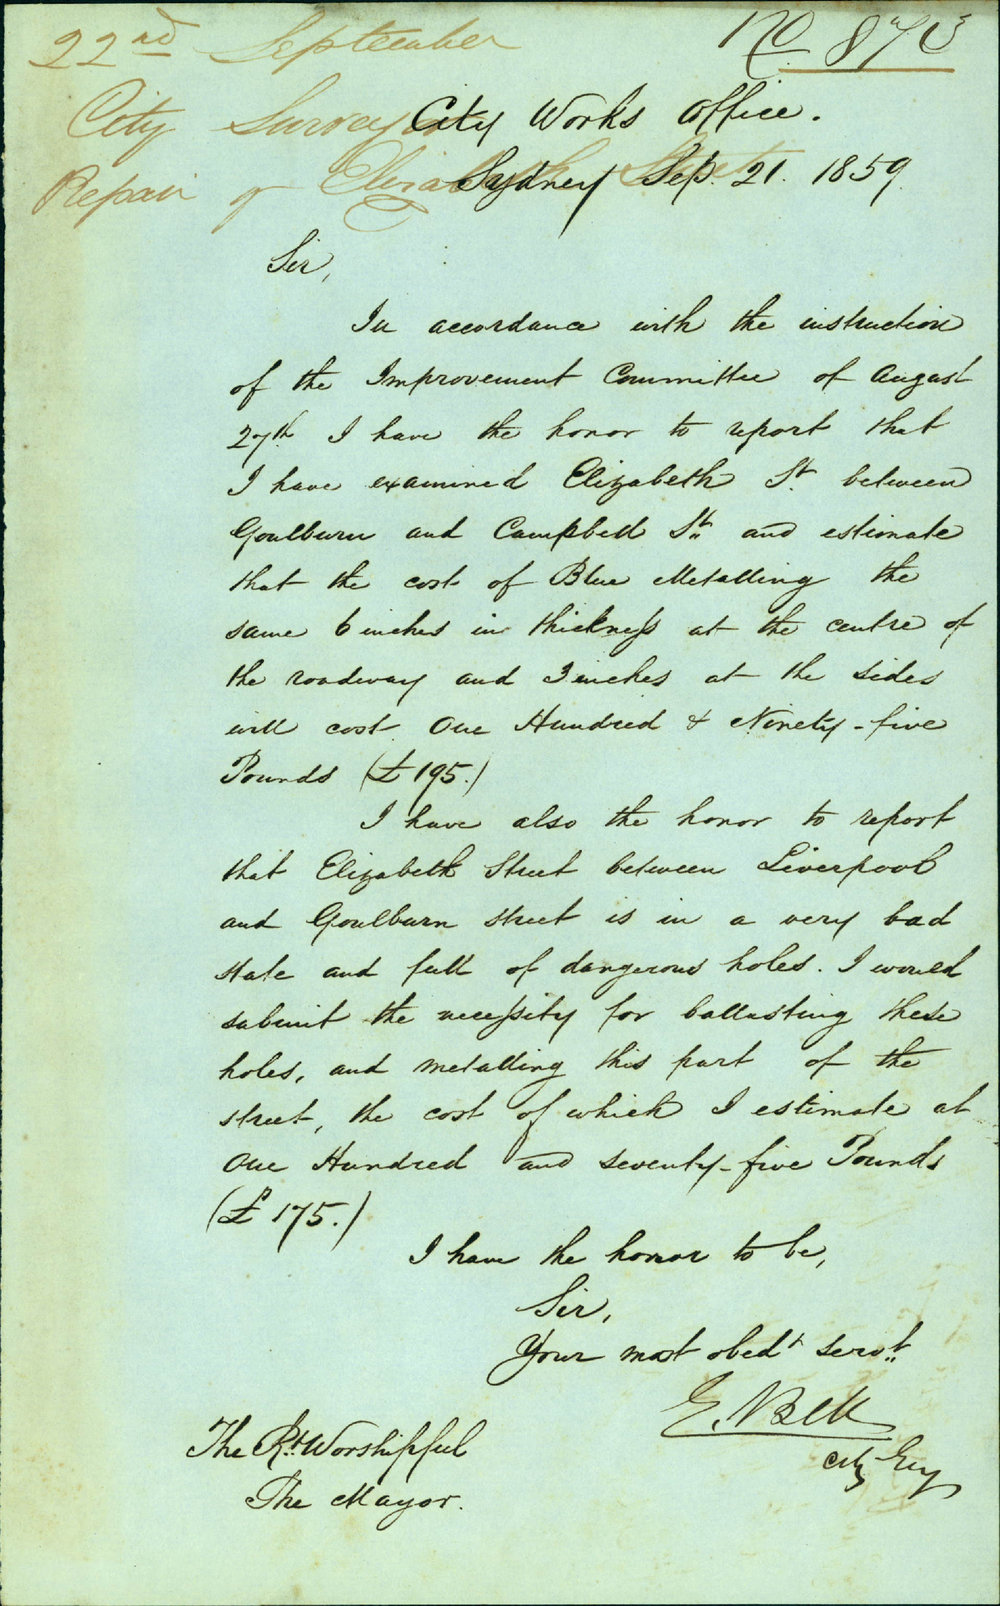 22nd September
No 873
City Surveyor
City Works Office.
Repair of Elizabeth Street
Sydney Sep. 21. 1859.
Sir,
In accordance with the instruction
of the Improvement Committee of August
27th I have the honor to report that
I have examined Elizabeth St. between
Goulburn and Campbell St. and estimate
that the cost of Blue Metalling the
same 6 inches in thickness at the centre of
the roadway and 3 inches at the sides
will cost One Hundred & Ninety-five
Pounds (£195.)
I have also the honor to report
that Elizabeth Street between Liverpool
and Goulburn street is in a very bad
state and full of dangerous holes. I would
submit the necessity for ballasting these
holes, and metalling this part of the
street, the cost of which I estimate at
One Hundred and seventy-five Pounds
(£175.)
I have the honor to be,
Sir,
Your most obedt servt.
E. Bell
City Eng
The Rt. Worshipful
The Mayor.